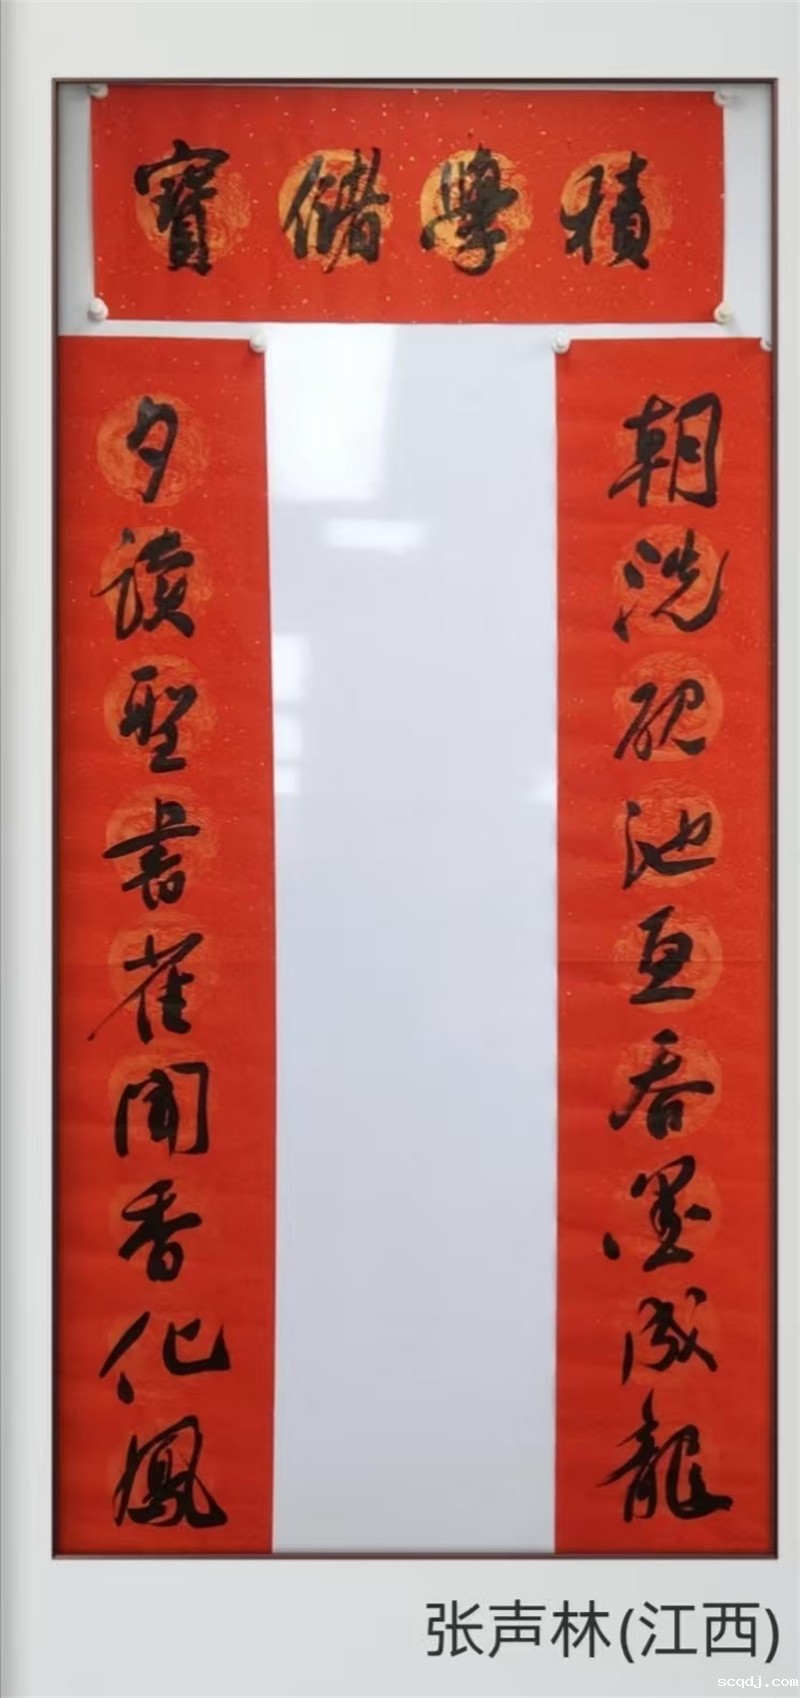 積學儲寶
朝洗硯池魚吞墨成龍
夕讀聖書雀聞香化鳳
张声林(江西)
scqdj.com